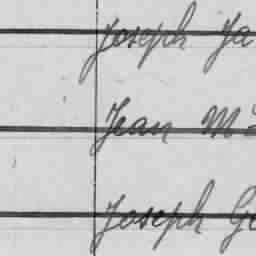 Joseph Ja
Jean Mc
Joseph Ge